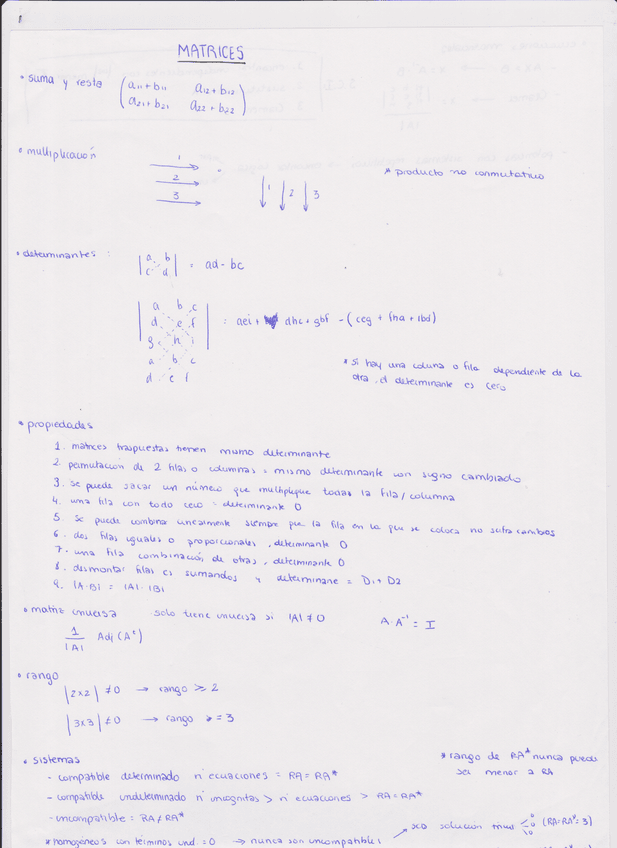 MATRICES
• suma y resta (a₁₁+b₁₁ a₁₂+b₁₂
a₂₁+b₂₁ a₂₂+b₂₂)
• multiplicación 1 2 3 · 1 2 3 * producto no conmutativo
• determinantes : |a b
c d| = ad - bc
|a b c
d e f
g h i| = aei + dhc + gbf - (ceg + fha + ibd)
a b c
d e f
* si hay una coluna o fila dependiente de la
otra, el determinante es cero
• propiedades
1. matrices traspuestas tienen mismo determinante
2. permutación de 2 filas o columnas = mismo determinante con signo cambiado
3. se puede sacar un número que multiplique toda la fila/columna
4. una fila con todo cero = determinante 0
5. se puede combinar linealmente siempre que la fila en la que se coloca no sufra cambios
6. dos filas iguales o proporcionales, determinante 0
7. una fila combinación de otras, determinante 0
8. desmontar filas es sumandos y determinane = D₁ + D₂
9. |A·B| = |A|·|B|
• matriz inversa solo tiene inversa si |A| ≠ 0 A·A⁻¹ = I
1/|A| Adj(Aᵗ)
• rango
|2x2| ≠ 0 → rango ≥ 2
|3x3| ≠ 0 → rango = 3
• sistemas * rango de RA* nunca puede
ser menor a RA
- compatible determinado nº ecuaciones = RA = RA*
- compatible undeterminado nº incognitas > nº ecuaciones > RA = RA*
- uncompatible = RA ≠ RA*
* homogeneos con términos ind. = 0 → nunca son uncompatibles
SCD solución trivial (RA=RA*=3)